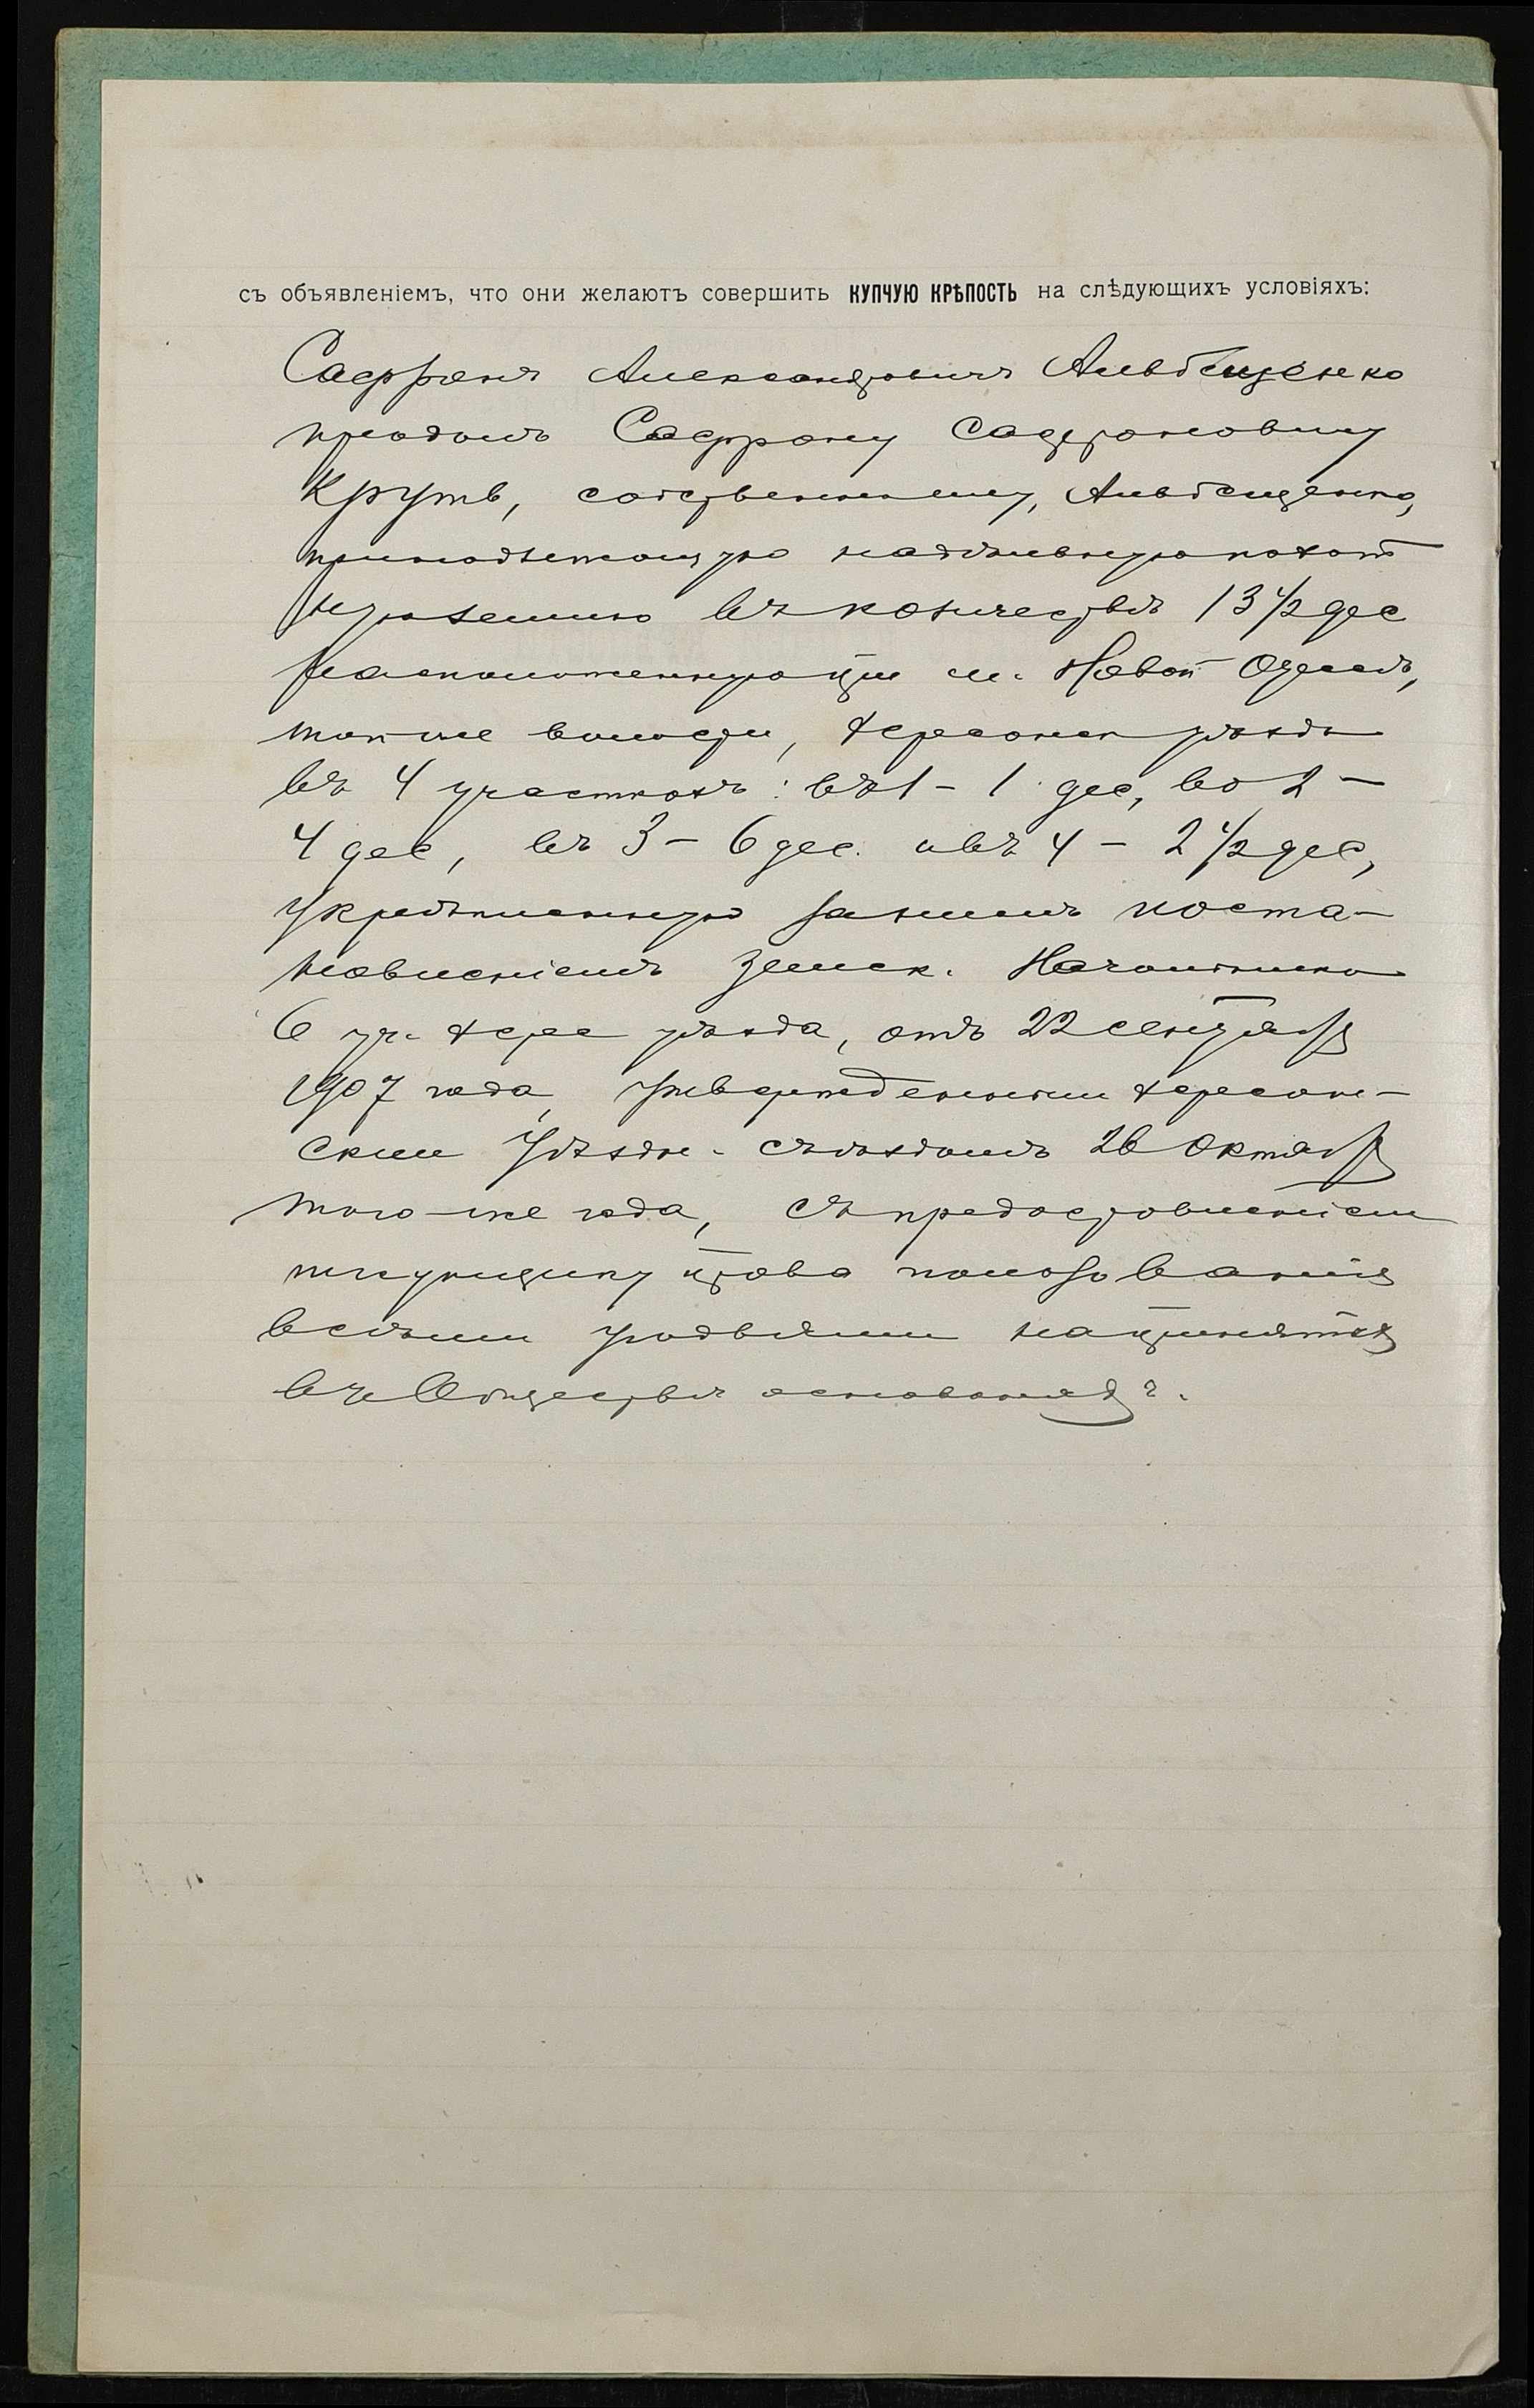 съ объявленіемъ, что они желаютъ совершить КУПЧУЮ КРѢПОСТЬ на слѣдующихъ условіяхъ:
Сафронъ Александровичъ
продалъ Сафрону Сафроновичу
Круть,
принадлежащую надѣльную пахот
ную землю въ количествѣ 13 1/2 дес
расположенную при м. Новой Одессѣ,
той же волости, Херсонск уѣзда
въ 4 участкахъ: въ 1 - 1 дес, во 2 -
4 дес, въ 3 - 6 дес. и въ 4 - 2 1/2 дес,
укрѣпленную за нимъ поста-
новленіемъ Земск. Начальника
6 уч. Херс уѣзда, отъ 22 сентября
1907 года, утвержденнымъ Херсон-
скимъ Уѣздн. съѣздомъ 26 Октября
того-же года, съ предоставленіем
покупщику права пользованія
всѣми угодьями на принятыхъ
въ Обществѣ основаніяхъ.